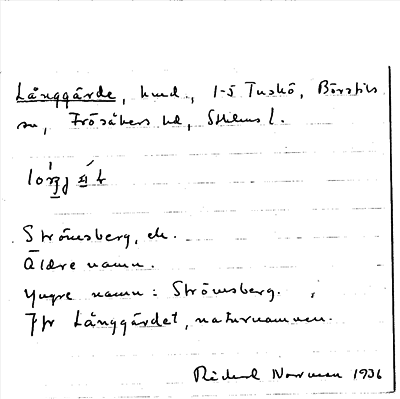 Långgärde, hmd., 1-5 Tuskö, Börstils
sn, Frösåkers hd, Sthlms l.
Strömsberg, ch.
Äldre namn.
Yngre namn: Strömsberg.
Jfr Långgärdet, naturnamnen.
Rickard Norman 1936